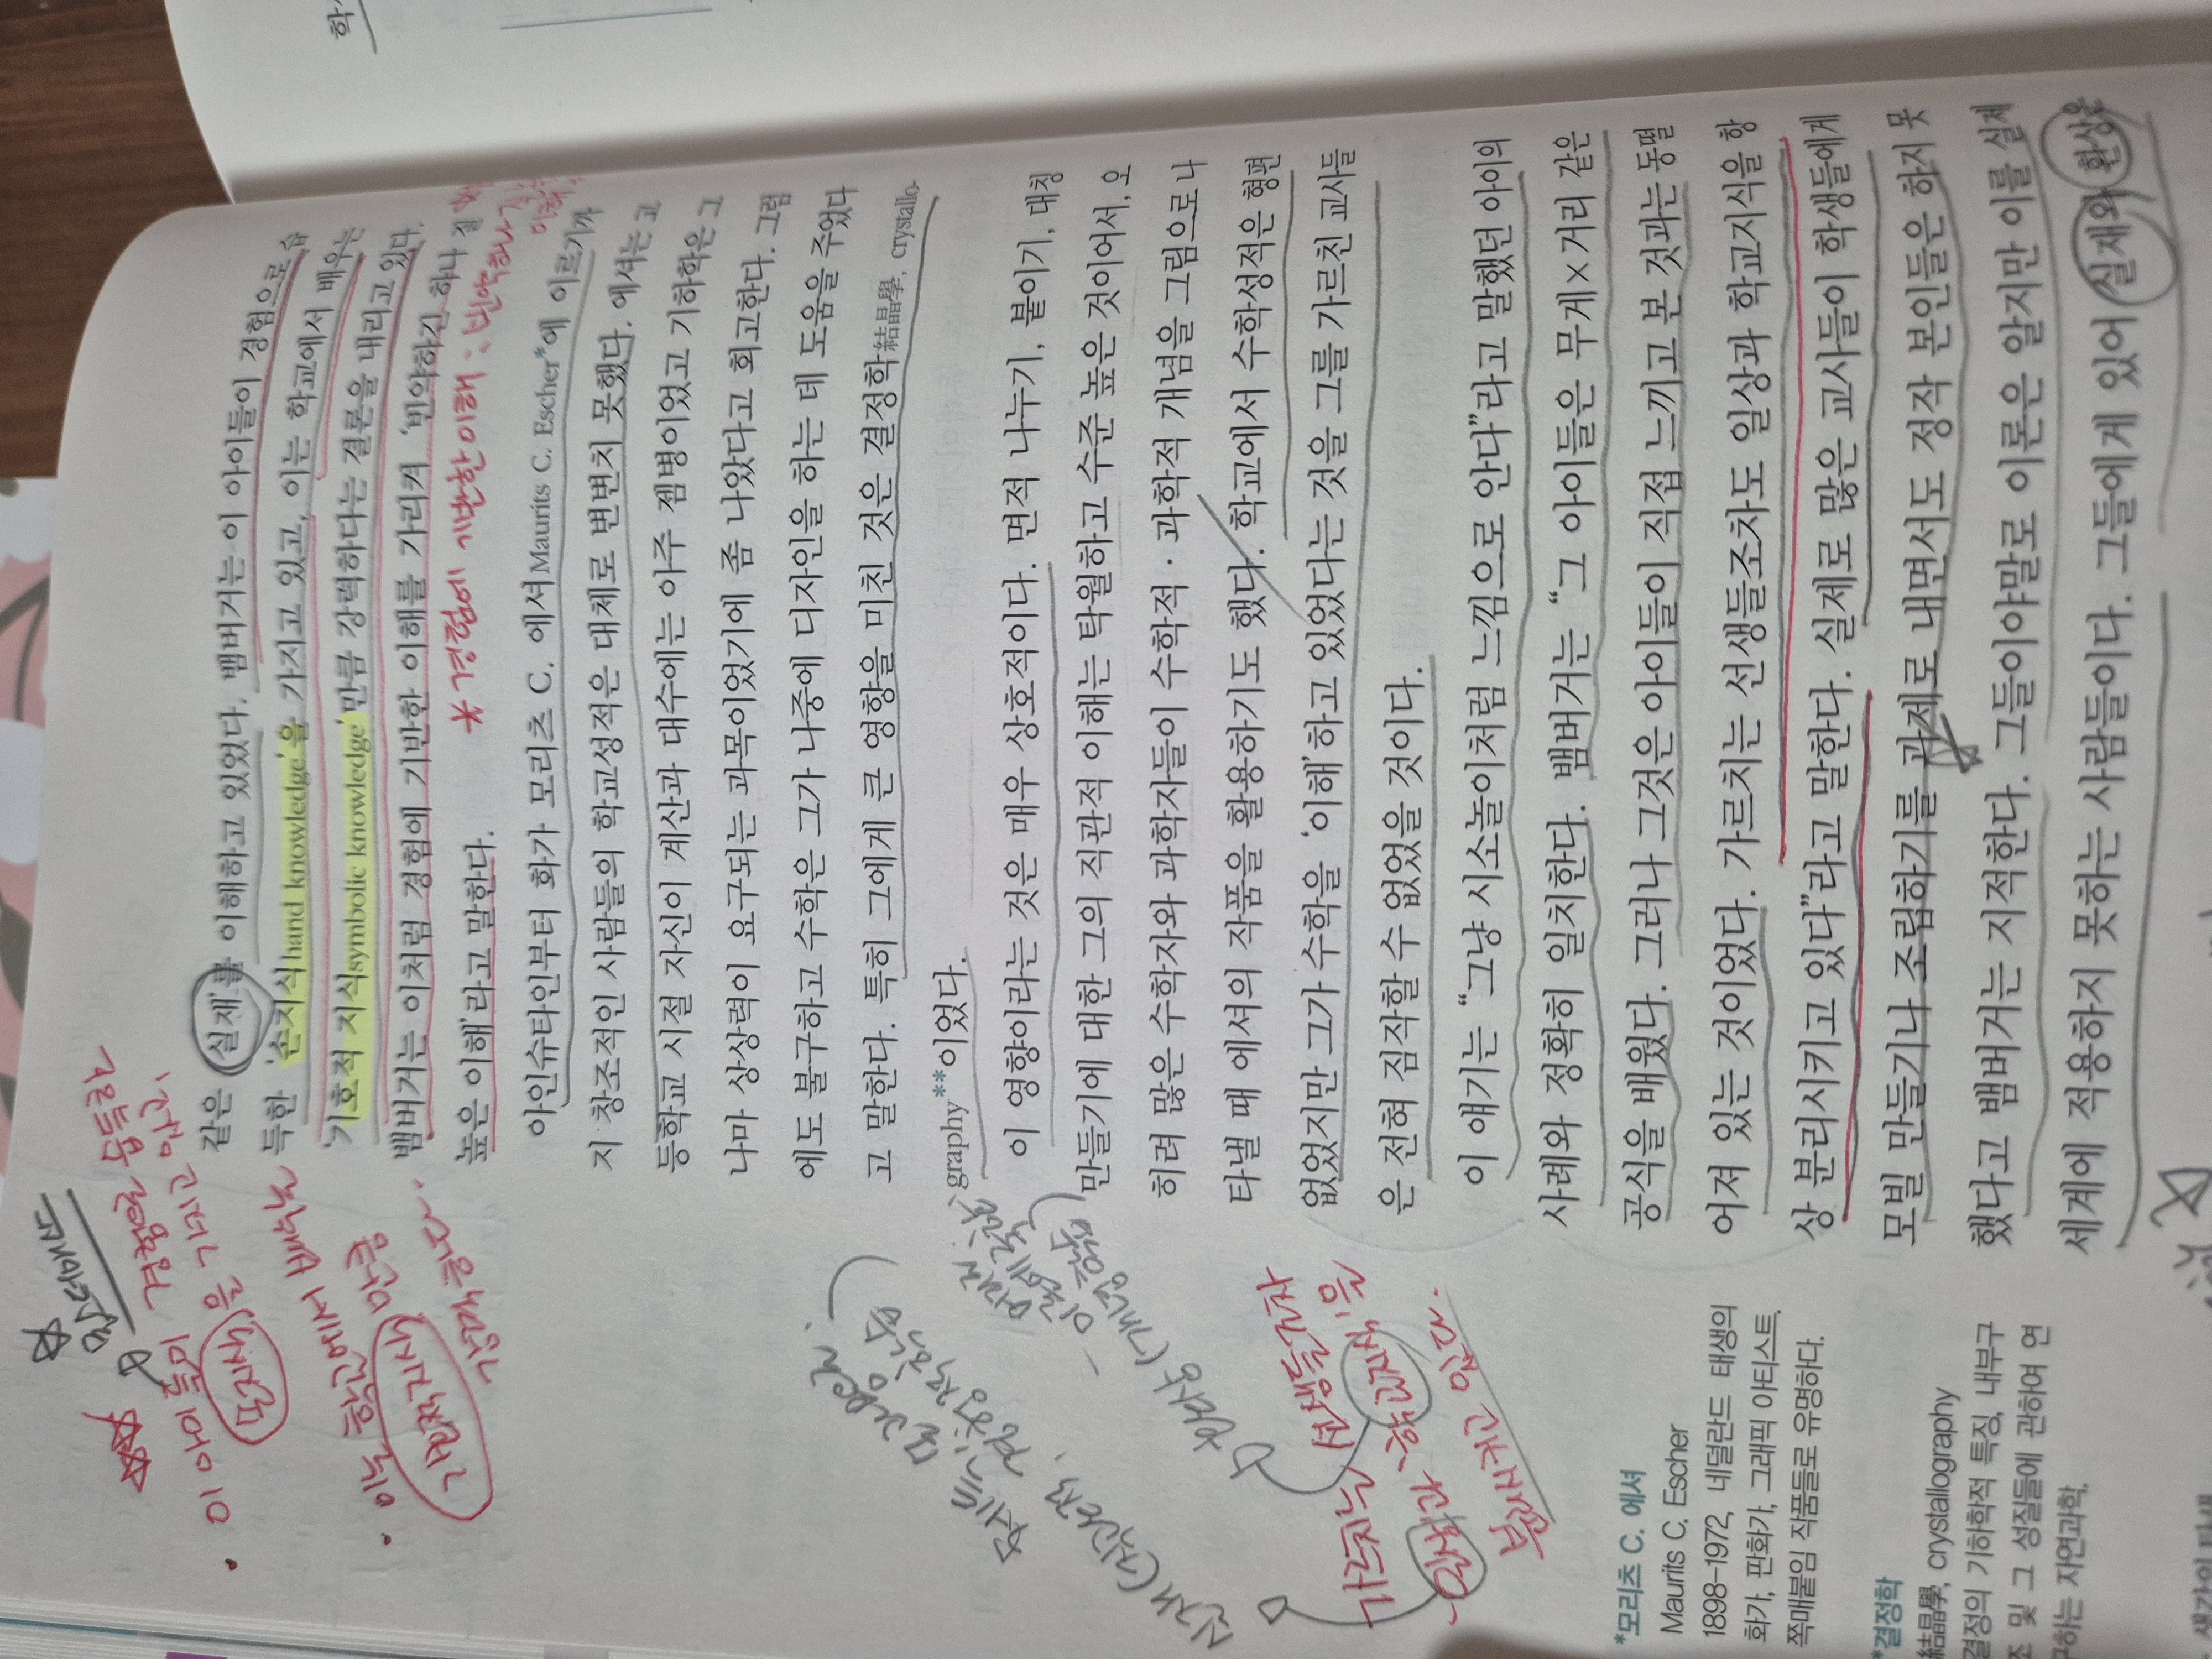 학
같은 '실재'를 이해하고 있었다. 뱀버거는 이 아이들이 경험으로 습
득한 '손지식hand knowledge'을 가지고 있고, 이는 학교에서 배우는
'기호적 지식symbolic knowledge'만큼 강력하다는 결론을 내리고 있다.
뱀버거는 이처럼 경험에 기반한 이해를 가리켜 '빈약하긴 하나 질
높은 이해'라고 말한다.
* 경험에 기반한 이해 : 빈약하나
아인슈타인부터 화가 모리츠 C. 에셔Maurits C. Escher*에 이르기까
지 창조적인 사람들의 학교성적은 대체로 변변치 못했다. 에셔는 고
등학교 시절 자신이 계산과 대수에는 아주 젬병이었고 기하학은 그
나마 상상력이 요구되는 과목이었기에 좀 나았다고 회고한다. 그럼
에도 불구하고 수학은 그가 나중에 디자인을 하는 데 도움을 주었다
고 말한다. 특히 그에게 큰 영향을 미친 것은 결정학結晶學, crystallo-
graphy**이었다.
이 영향이라는 것은 매우 상호적이다. 면적 나누기, 붙이기, 대칭
만들기에 대한 그의 직관적 이해는 탁월하고 수준 높은 것이어서, 오
히려 많은 수학자와 과학자들이 수학적 · 과학적 개념을 그림으로 나
타낼 때 에셔의 작품을 활용하기도 했다. 학교에서 수학성적은 형편
없었지만 그가 수학을 '이해'하고 있었다는 것을 그를 가르친 교사들
은 전혀 짐작할 수 없었을 것이다.
이 얘기는 "그냥 시소놀이처럼 느낌으로 안다"라고 말했던 아이의
사례와 정확히 일치한다. 뱀버거는 "그 아이들은 무게×거리 같은
공식을 배웠다. 그러나 그것은 아이들이 직접 느끼고 본 것과는 동떨
어져 있는 것이었다. 가르치는 선생들조차도 일상과 학교지식을 항
상 분리시키고 있다"라고 말한다. 실제로 많은 교사들이 학생들에게
모빌 만들기나 조립하기를 과제로 내면서도 정작 본인들은 하지 못
했다고 뱀버거는 지적한다. 그들이야말로 이론은 알지만 이를 실제
세계에 적용하지 못하는 사람들이다. 그들에게 있어 실재와 환상은
이 아이들이 경험으로 습득한
손지식을 가지고 있고,
이는 학교에서 배우는
기호적지식만큼
강력하다
가르치는 선생들조차
일상과 학교지식을
분리시키고 있다.
*모리츠 C. 에셔
Maurits C. Escher
1898-1972, 네덜란드 태생의
화가, 판화가, 그래픽 아티스트.
쪽매붙임 작품들로 유명하다.
**결정학
結晶學, crystallography
결정의 기하학적 특징, 내부구
조 및 그 성질들에 관하여 연
구하는 자연과학.